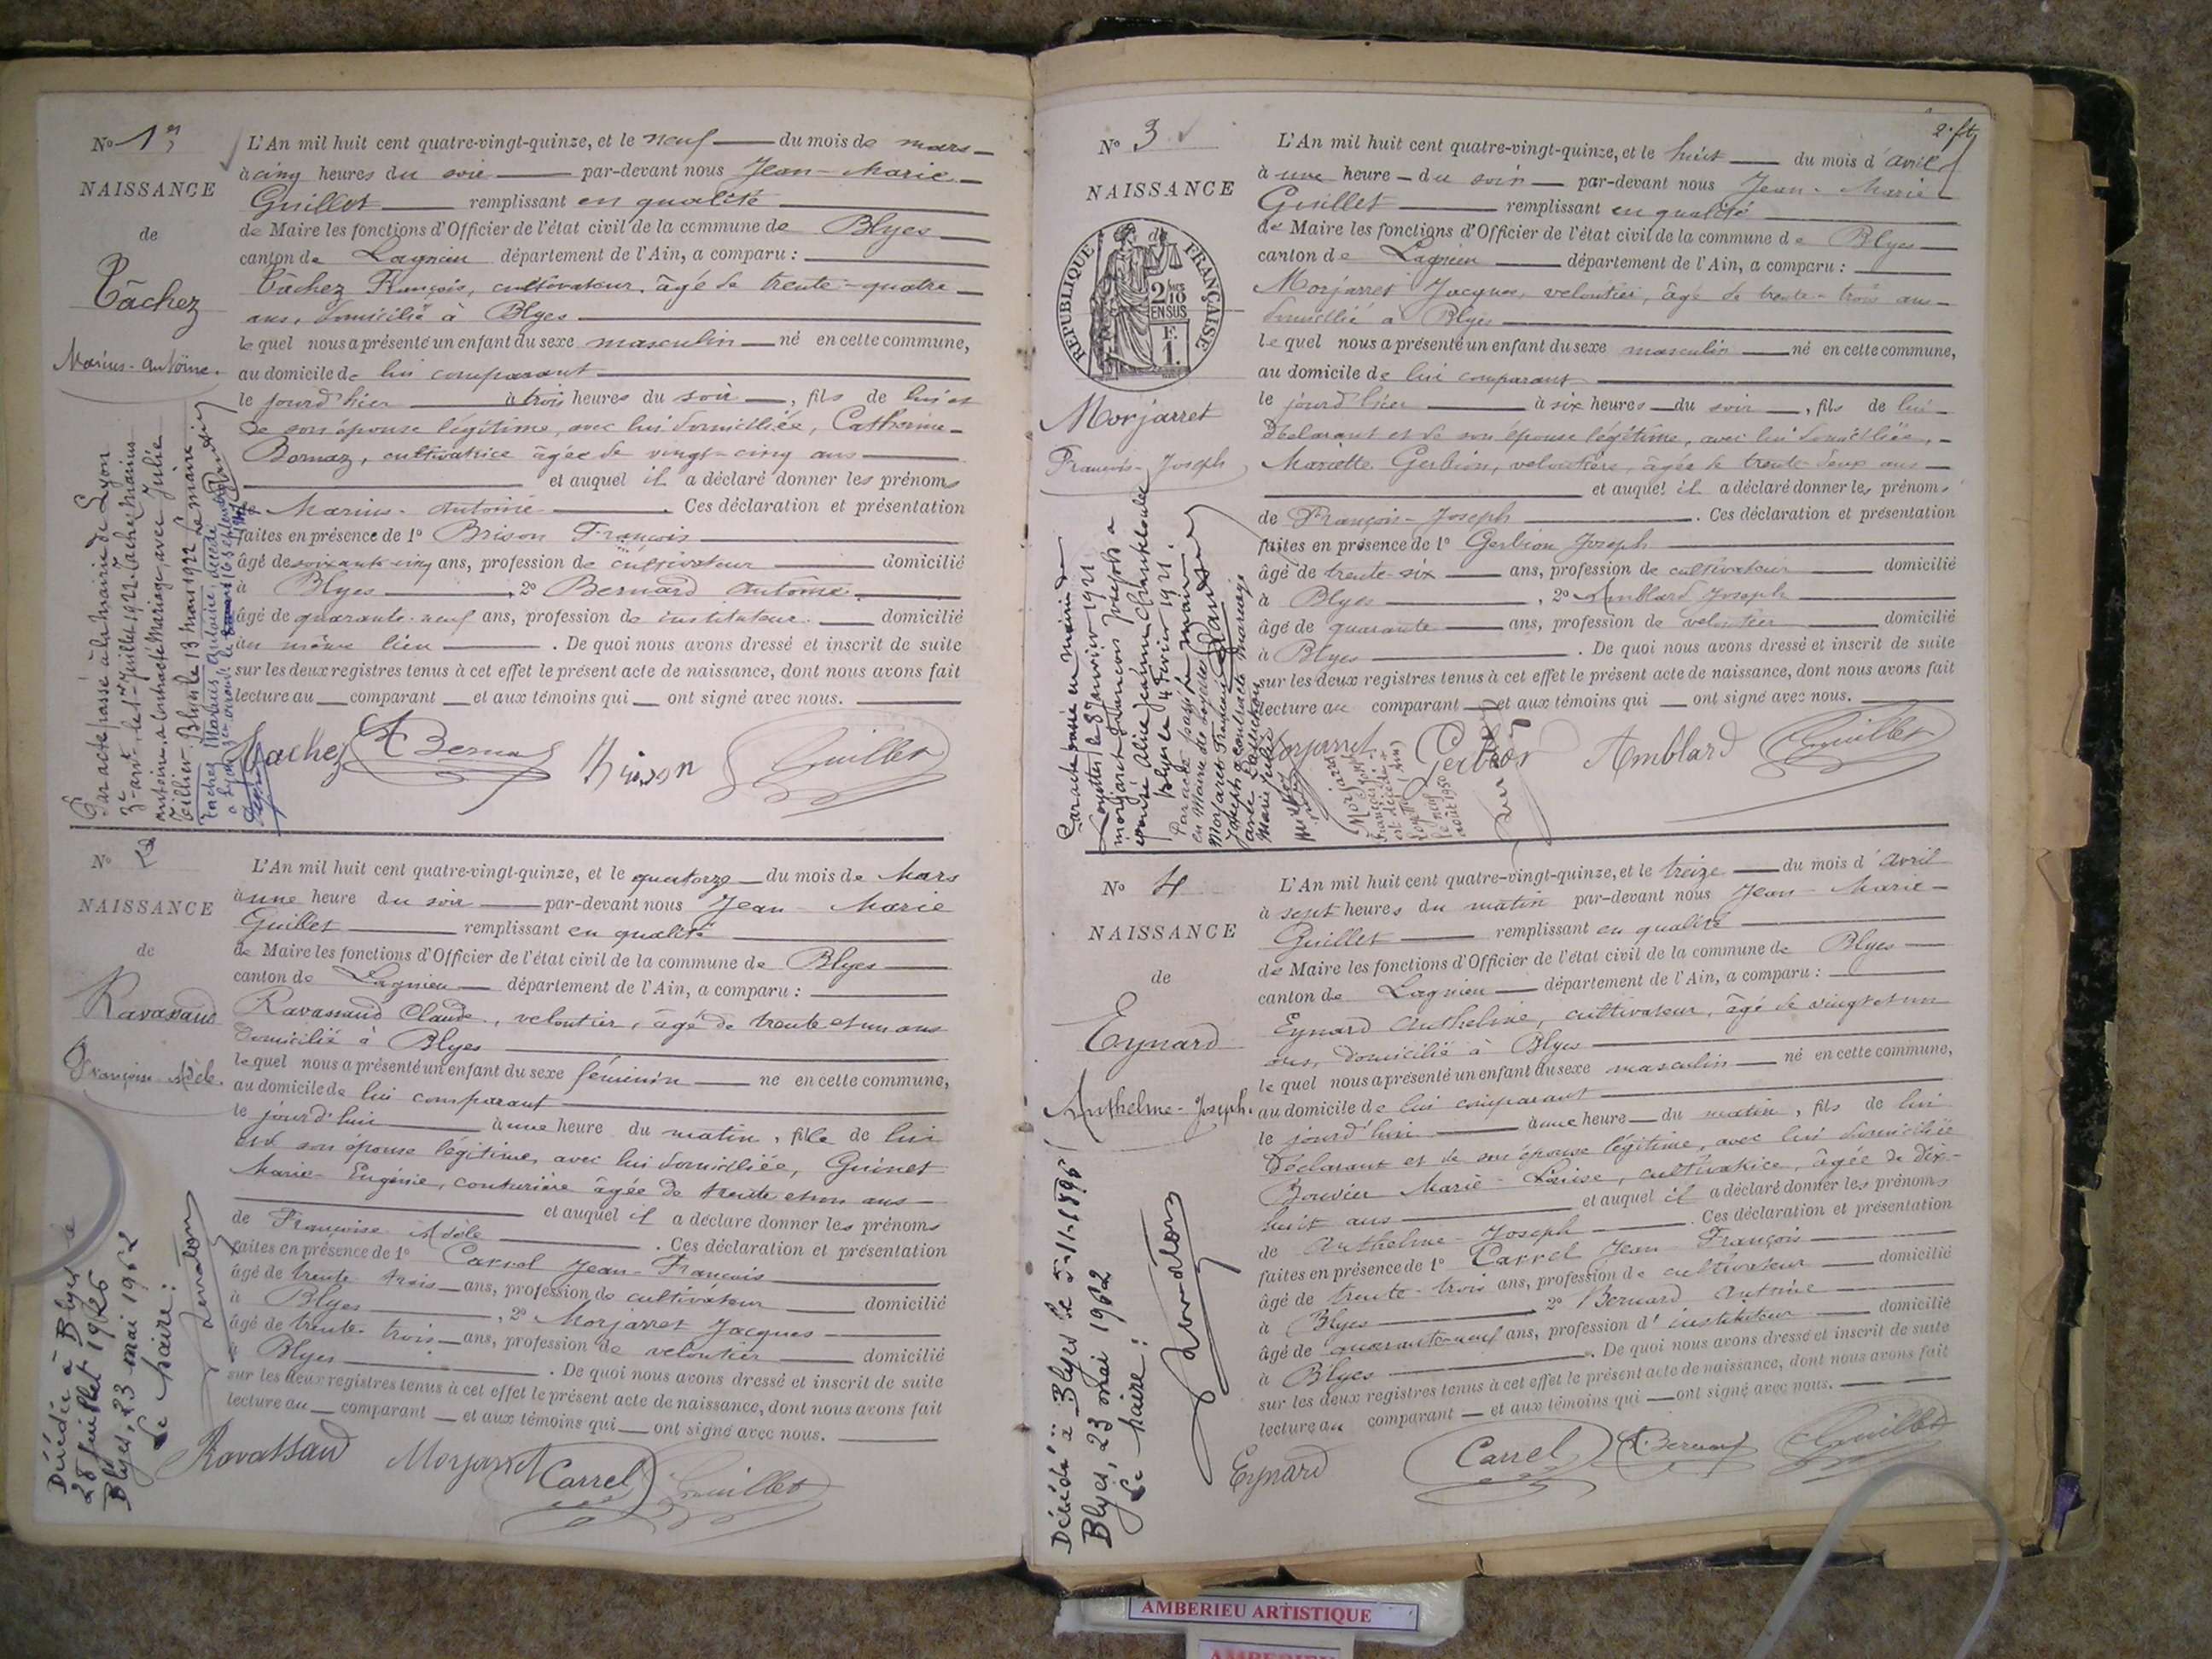 No 1er
NAISSANCE
de
Tâchez
Marius-Antoine.
L'An mil huit cent quatre-vingt-quinze, et le neuf du mois de mars
à cinq heures du soir par-devant nous Jean-Marie
Guillet remplissant en qualité
de Maire les fonctions d'Officier de l'état civil de la commune de Blyes
canton de Lagnieu département de l'Ain, a comparu :
Tâchez François, cultivateur, âgé de trente-quatre
ans, domicilié à Blyes
lequel nous a présenté un enfant du sexe masculin né en cette commune,
au domicile de lui comparant
le jourd'hier à trois heures du soir, fils de lui et
de son épouse légitime, avec lui domiciliée, Catherine
Bornaz, cultivatrice âgée de vingt-cinq ans
et auquel il a déclaré donner les prénoms
de Marius-Antoine. Ces déclaration et présentation
faites en présence de 1º Brison François
âgé de soixante-cinq ans, profession de cultivateur domicilié
à Blyes, 2º Bernard Antoine.
âgé de quarante-neuf ans, profession de instituteur domicilié
au même lieu. De quoi nous avons dressé et inscrit de suite
sur les deux registres tenus à cet effet le présent acte de naissance, dont nous avons fait
lecture au comparant et aux témoins qui ont signé avec nous.
Tachez A Bernard Brison Guillet
Par acte passé à la Mairie de Lyon
3e arrt le 1er Juillet 1922 Tachez Marius
Antoine a contracté Mariage avec Julie
Tillier. Blyes le 13 mars 1922 Le maire
Tachez Marius Antoine décédé
No 2
NAISSANCE
de
Ravassaud
Françoise Adèle.
L'An mil huit cent quatre-vingt-quinze, et le quatorze du mois de Mars
à une heure du soir par-devant nous Jean-Marie
Guillet remplissant en qualité
de Maire les fonctions d'Officier de l'état civil de la commune de Blyes
canton de Lagnieu département de l'Ain, a comparu :
Ravassaud Claude, veloutier, âgé de trente et un ans
domicilié à Blyes
lequel nous a présenté un enfant du sexe féminin né en cette commune,
au domicile de lui comparant
le jourd'hui à une heure du matin, fille de lui
et de son épouse légitime, avec lui domiciliée, Guinet
Marie-Eugénie, couturière âgée de trente et un ans
et auquel il a déclaré donner les prénoms
de Françoise Adèle. Ces déclaration et présentation
faites en présence de 1º Carrel Jean-François
âgé de trente trois ans, profession de cultivateur domicilié
à Blyes, 2º Morjarret Jacques
âgé de trente-trois ans, profession de veloutier domicilié
à Blyes. De quoi nous avons dressé et inscrit de suite
sur les deux registres tenus à cet effet le présent acte de naissance, dont nous avons fait
lecture au comparant et aux témoins qui ont signé avec nous.
Ravassaud Morjarret Carrel Guillet
Décédée à Blyes le
28 juillet 1926
Blyes, 23 mai 1962
Le Maire :
2e ft
No 3
NAISSANCE
de
RÉPUBLIQUE FRANÇAISE
2/10 EN SUS
F. 1.
Morjarret
François-Joseph
L'An mil huit cent quatre-vingt-quinze, et le huit du mois d'avril
à une heure du soir par-devant nous Jean-Marie
Guillet remplissant en qualité
de Maire les fonctions d'Officier de l'état civil de la commune de Blyes
canton de Lagnieu département de l'Ain, a comparu :
Morjarret Jacques, veloutier, âgé de trente-trois ans
domicilié à Blyes
lequel nous a présenté un enfant du sexe masculin né en cette commune,
au domicile de lui comparant
le jourd'hier à six heures du soir, fils de lui
déclarant et de son épouse légitime, avec lui domiciliée,
Mariette Gerbion, veloutière, âgée de trente-deux ans
et auquel il a déclaré donner les prénoms
de François-Joseph. Ces déclaration et présentation
faites en présence de 1º Gerbion Joseph
âgé de trente-six ans, profession de cultivateur domicilié
à Blyes, 2º Amblard Joseph
âgé de quarante ans, profession de veloutier domicilié
à Blyes. De quoi nous avons dressé et inscrit de suite
sur les deux registres tenus à cet effet le présent acte de naissance, dont nous avons fait
lecture au comparant et aux témoins qui ont signé avec nous.
Morjarret Gerbion Amblard Guillet
Par acte passé en mairie de
Loyettes le 8 Janvier 1921
morjarret françois joseph a
épousé Alice jeanne
Blyes le 4 février 1921.
Par acte passé
en Mairie de Loyettes
Morjarret François
Joseph a contracté mariage
avec
Marie
Morjarret
François
est décédé à
Loyettes (Ain)
le neuf
août 1950
No 4
NAISSANCE
de
Eynard
Anthelme-Joseph.
L'An mil huit cent quatre-vingt-quinze, et le treize du mois d'avril
à sept heures du matin par-devant nous Jean-Marie
Guillet remplissant en qualité
de Maire les fonctions d'Officier de l'état civil de la commune de Blyes
canton de Lagnieu département de l'Ain, a comparu :
Eynard Anthelme, cultivateur, âgé de vingt et un
ans, domicilié à Blyes
lequel nous a présenté un enfant du sexe masculin né en cette commune,
au domicile de lui comparant
le jourd'hui à une heure du matin, fils de lui
déclarant et de son épouse légitime, avec lui domiciliée
Bouvier Marie-Louise, cultivatrice, âgée de dix-
huit ans et auquel il a déclaré donner les prénoms
de Anthelme-Joseph. Ces déclaration et présentation
faites en présence de 1º Carrel Jean François
âgé de trente-trois ans, profession de cultivateur domicilié
à Blyes 2º Bernard Antoine
âgé de quarante-neuf ans, profession d'instituteur domicilié
à Blyes. De quoi nous avons dressé et inscrit de suite
sur les deux registres tenus à cet effet le présent acte de naissance, dont nous avons fait
lecture au comparant et aux témoins qui ont signé avec nous.
Eynard Carrel A. Bernard Guillet
Décédé à Blyes le 5-11-1896
Blyes, 23 mai 1962
Le Maire :
AMBERIEU ARTISTIQUE
AMBERIEU